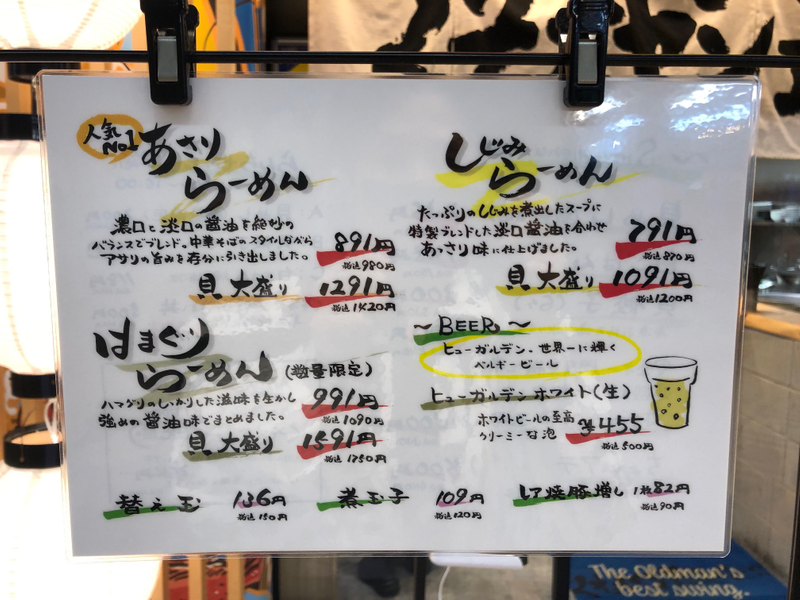 人気
No1
あさり
らーめん
濃口と淡口の醤油を絶妙の
バランスでブレンド。中華そばのスタイルながら
アサリの旨みを存分に引き出しました。
891円
税込980円
貝 大盛り 1291円
税込1420円
はまぐり
らーめん (数量限定)
ハマグリのしっかりした滋味を生かし
強めの醤油味でまとめました。
991円
税込1090円
貝 大盛り 1591円
税込1750円
しじみ
らーめん
たっぷりのしじみを煮出したスープに
特製ブレンドした淡口醤油を合わせ
あっさり味に仕上げました。
791円
税込870円
貝 大盛り 1091円
税込1200円
〜BEER〜
ヒューガルデン、世界一に輝く
ベルギービール
ヒューガルデンホワイト(生)
ホワイトビールの至高
クリーミーな泡
¥455
税込500円
替え玉 136円
税込150円
煮玉子 109円
税込120円
レア焼豚増し 1枚82円
税込90円
The Oldman's
best swing.